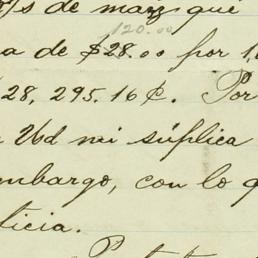 de maiz que
120.00
a de $28.00 por 1,
28, 295.16 ¢. Por
Ud mi súplica
embargo, con lo q
ticia.